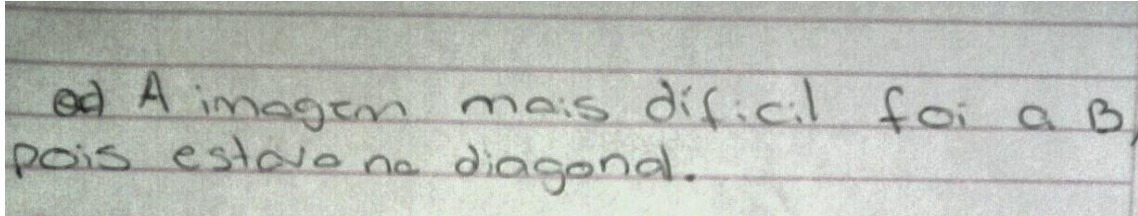 d) A imagem mais dificil foi a B,
pois estava na diagonal.